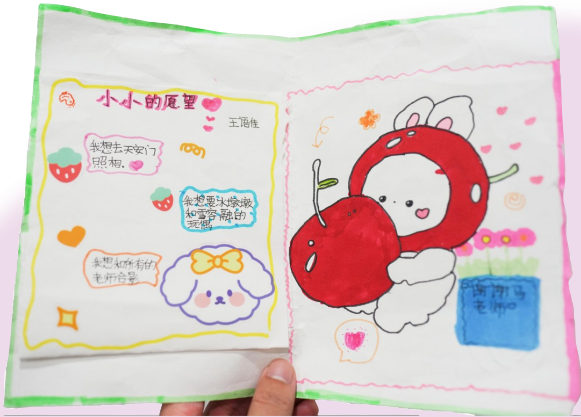 小小的愿望
王语佳
我想去天安门
照相。
我想要冰墩墩
和雪容融的
玩偶
我想和所有的
老师合影
谢谢马
老师